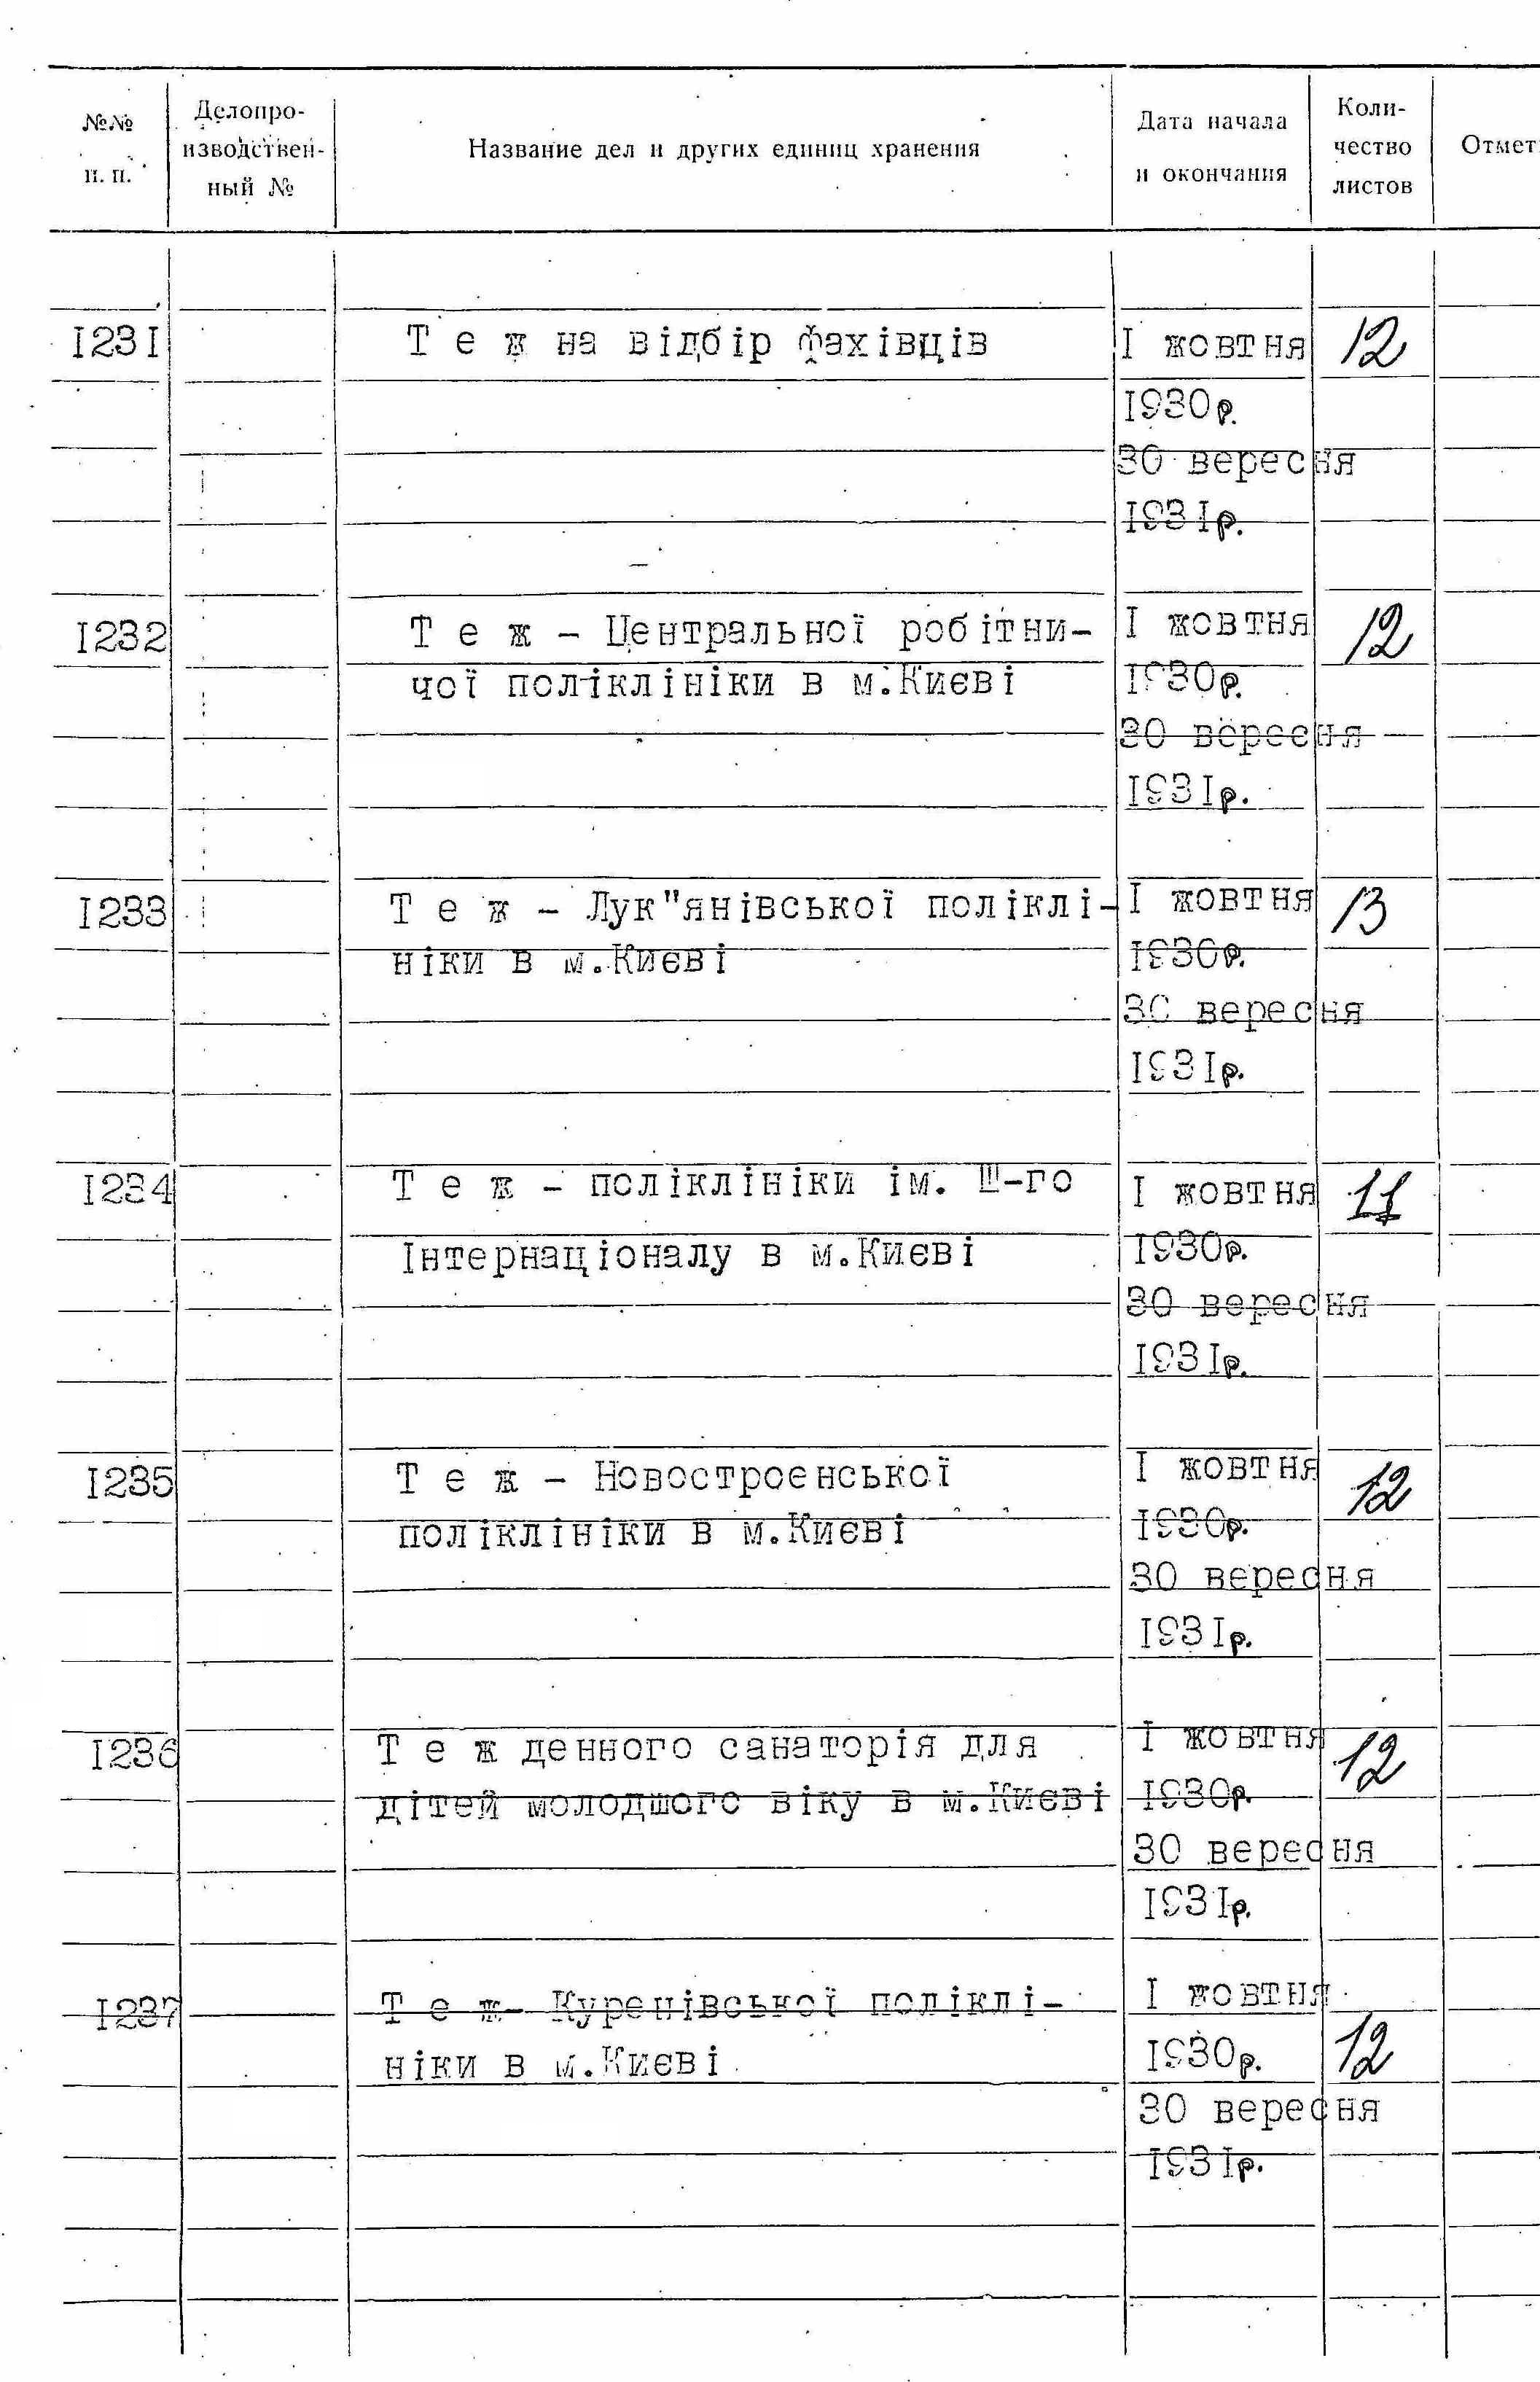 №№ п. п.
Делопро-
изводствен-
ный №
Название дел и других единиц хранения
Дата начала
и окончания
Коли-
чество
листов
Отмет
I23I Т е ж на відбір фахівців I жовтня 12
I930р.
30 вересня
I93Iр.
I232 Т е ж - Центральної робітни- I жовтня 12
чої поліклініки в м.Києві I930р.
30 вересня
I93Iр.
I233 Т е ж - Лук"янівської поліклі- I жовтня 13
ніки в м.Києві I930р.
30 вересня
I93Iр.
I234 Т е ж - поліклініки ім. Ш-го I жовтня 11
Інтернаціоналу в м.Києві I930р.
30 вересня
I93Iр.
I235 Т е ж - Новостроєнської I жовтня 12
поліклініки в м.Києві I930р.
30 вересня
I93Iр.
I236 Т е ж денного санаторія для I жовтня 12
дітей молодшого віку в м.Києві I930р.
30 вересня
I93Iр.
I237 Т е ж- Куренівської поліклі- I жовтня
ніки в м.Києві I930р. 12
30 вересня
I93Iр.